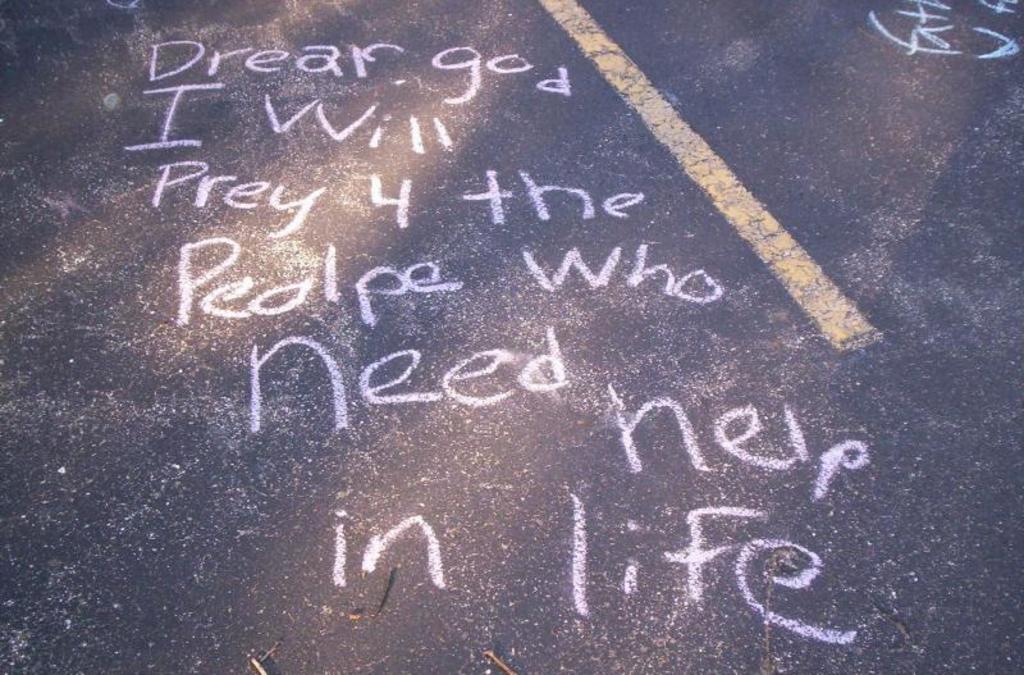 Drear god
I Will
Prey 4 the
Pealpe who
need help
in life